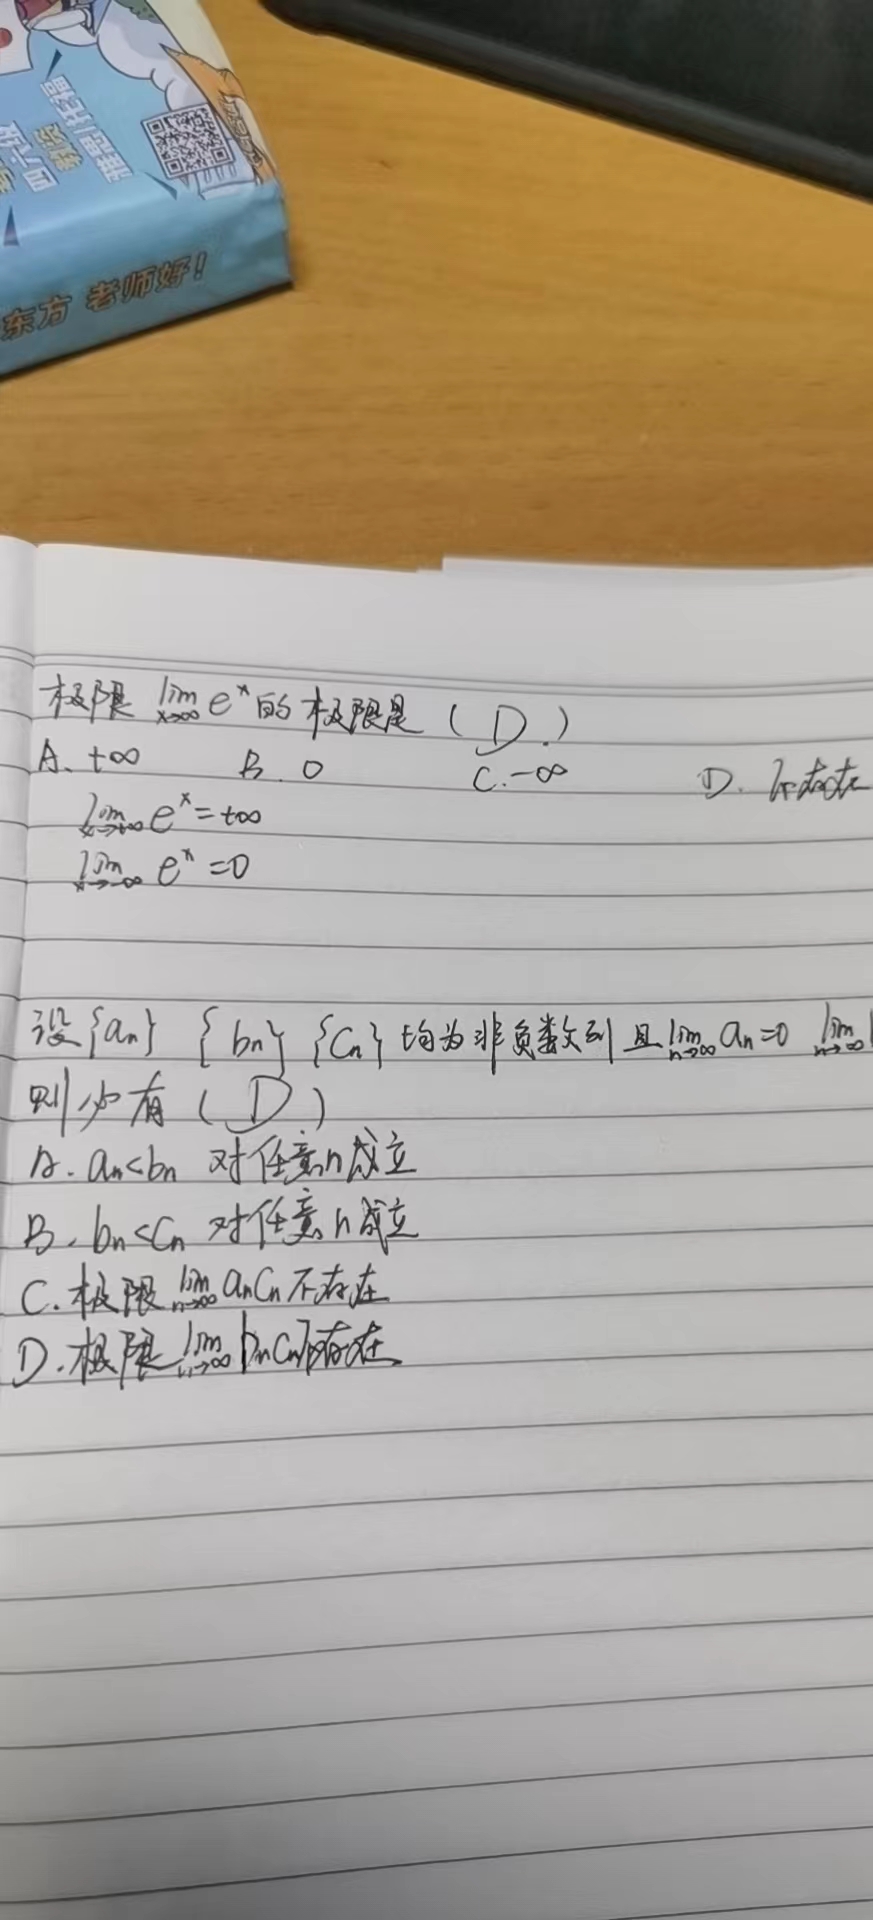 东方 老师好!
极限 lim x→∞ e^x 的极限是 ( D. )
A、+∞ B. 0 C. -∞ D. 不存在
lim x→+∞ e^x = +∞
lim x→-∞ e^x = 0
设{an} {bn} {Cn} 均为非负数列 且 lim n→∞ an=0 lim n→∞
则必有 ( D )
A. an<bn 对任意n成立
B. bn<Cn 对任意n成立
C. 极限 lim n→∞ anCn 不存在
D. 极限 lim n→∞ bnCn不存在